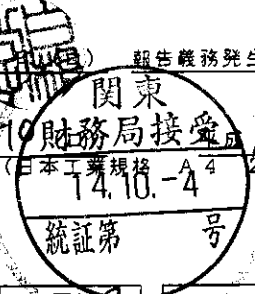 報告義務発生
関東
財務局接受
(日本工業規格 A4
14.10.-4
統証第 号